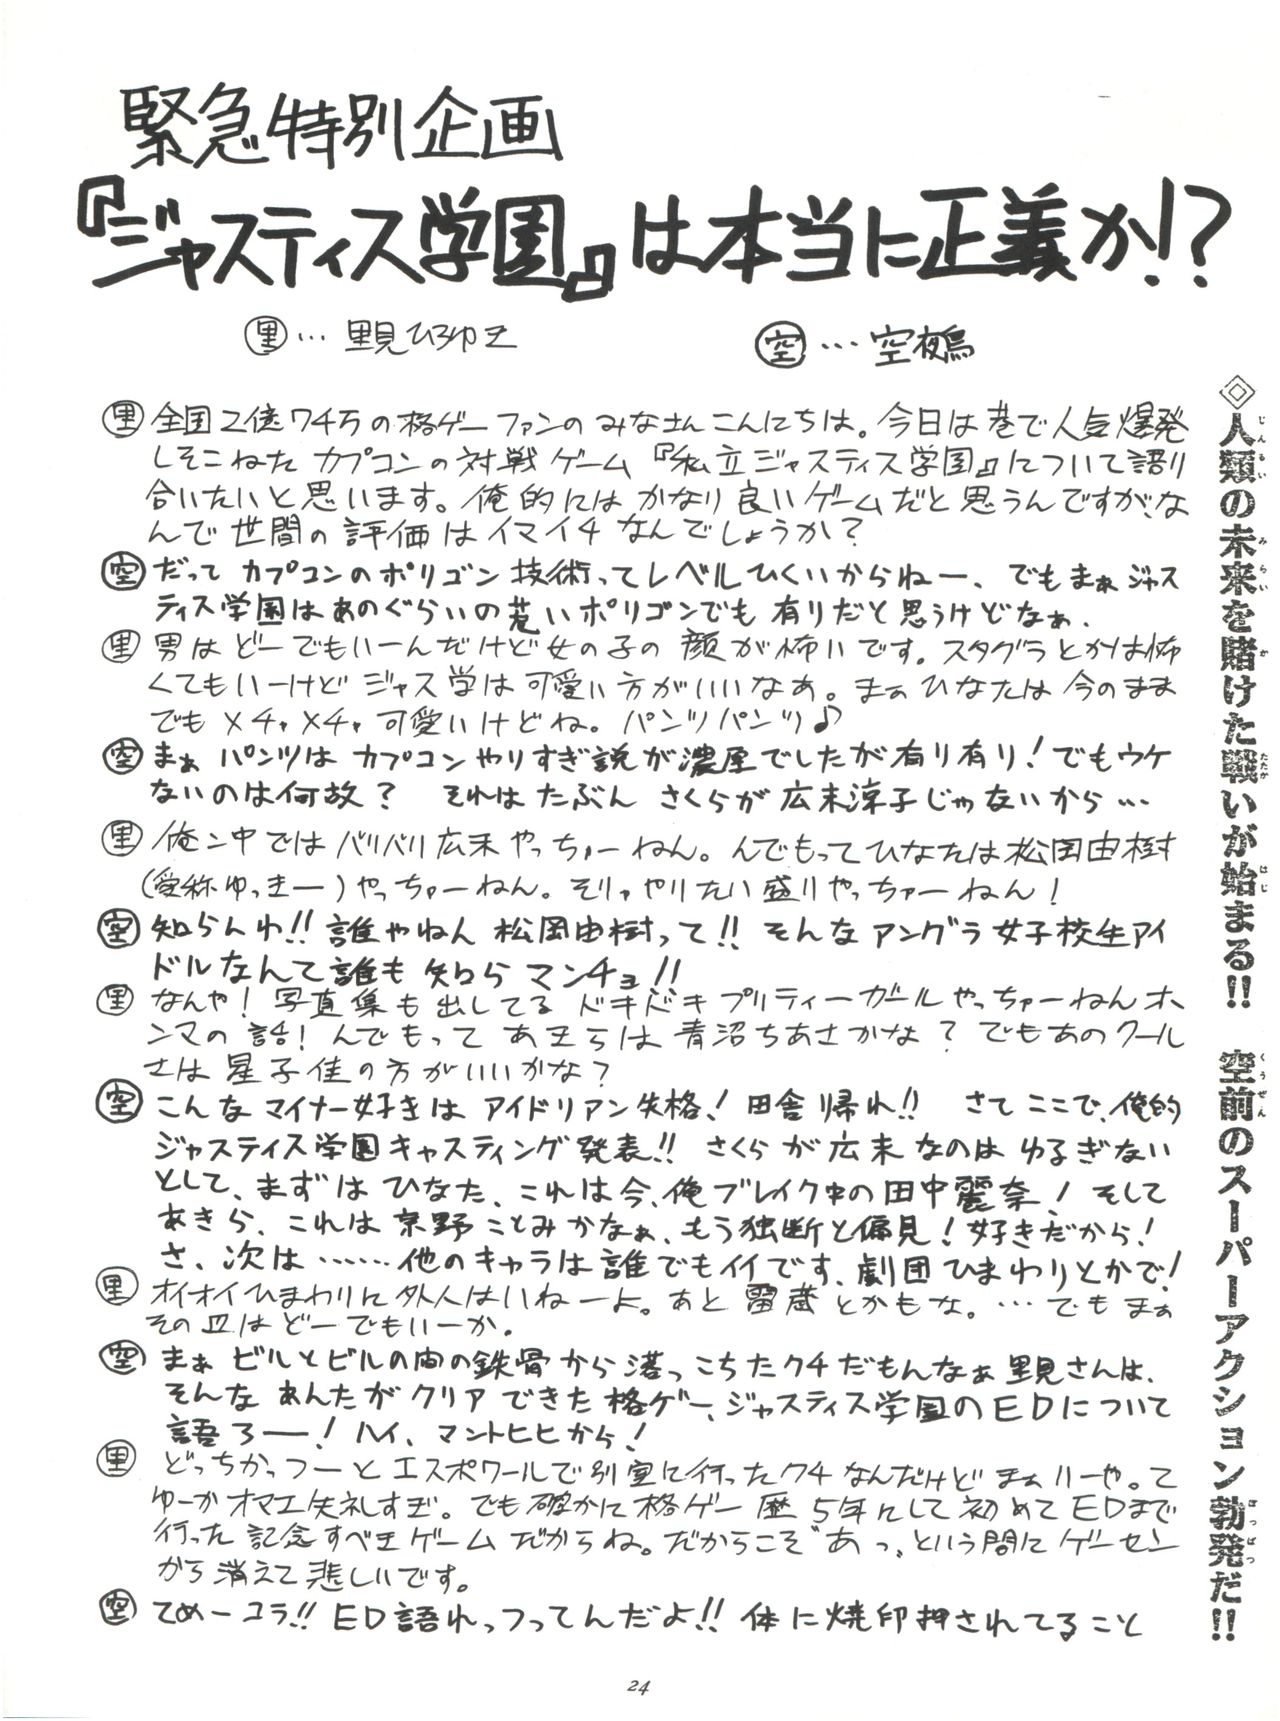 緊急特別企画
『ジャスティス学園』は本当に正義か!?
里…里見ひろゆき
空…空夜鳥
里 全国2億7千万の格ゲーファンのみなさんこんにちは。今日は巷で人気爆発
しそこねた カプコンの対戦ゲーム『私立ジャスティス学園』について語り
合いたいと思います。俺的にはかなり良いゲームだと思うんですが、な
んで世間の評価はイマイチなんでしょうか?
空 だってカプコンのポリゴン技術ってレベルひくいからねー、でもまぁジャス
ティス学園はあのぐらいの荒いポリゴンでも有りだと思うけどなぁ、
里 男はどーでもいーんだけど女の子の顔が怖いです。スタグラとかは怖
くてもいーけどジャス学は可愛い方がいいなあ。まぁひなたは今のまま
でもメチャメチャ可愛いけどね。パンツパンツ♪
空 まぁパンツはカプコンやりすぎ説が濃厚でしたが有り有り!でもウケ
ないのは何故? それはたぶんさくらが広末涼子じゃないから…
里 俺ン中ではバリバリ広末やっちゅーねん。んでもってひなたは松岡由樹
(愛称ゆっきー)やっちゅーねん。そりゃやりたい盛りやっちゅーねん!
空 知らんわ!!誰やねん松岡由樹って!!そんなアングラ女子校生アイ
ドルなんて誰も知らマンチョ!!
里 なんや!写真集も出してるドキドキプリティーガールやっちゅーねんホ
ンマの話!んでもってあきらは青沼ちあさかな?でもあのクール
さは星子佳の方がいいかな?
空 こんなマイナー好きはアイドリアン失格!田舎帰れ!! さてここで、俺的
ジャスティス学園キャスティング発表!!さくらが広末なのはゆるぎない
として、まずはひなた、これは今、俺ブレイク中の田中麗奈!そして
あきら、これは京野ことみかなぁ、もう独断と偏見!好きだから!
さ、次は……他のキャラは誰でもイイです、劇団ひまわりとかで!
里 オイオイひまわりに外人はいねーよ。あと雷蔵とかもな。…でもまぁ
その辺はどーでもいーか。
空 まぁビルとビルの間の鉄骨から落っこちたクチだもんなぁ里見さんは、
そんなあんたがクリアできた格ゲー、ジャスティス学園のEDについて
語ろー!ハイ、マントヒヒから!
里 どっちかっつーとエスポワールで別室に行ったクチなんだけどまぁいーや。て
ゆーかオマエ失礼すぎ。でも確かに格ゲー歴5年にして初めてEDまで
行った記念すべきゲームだからね。だからこそ"あっ"という間にゲーセン
から消えて悲しいです。
空 てめーコラ!!ED語れっつってんだよ!!体に焼印押されてること
◇人類の未来を賭けた戦いが始まる!! 空前のスーパーアクション勃発だ!!
24